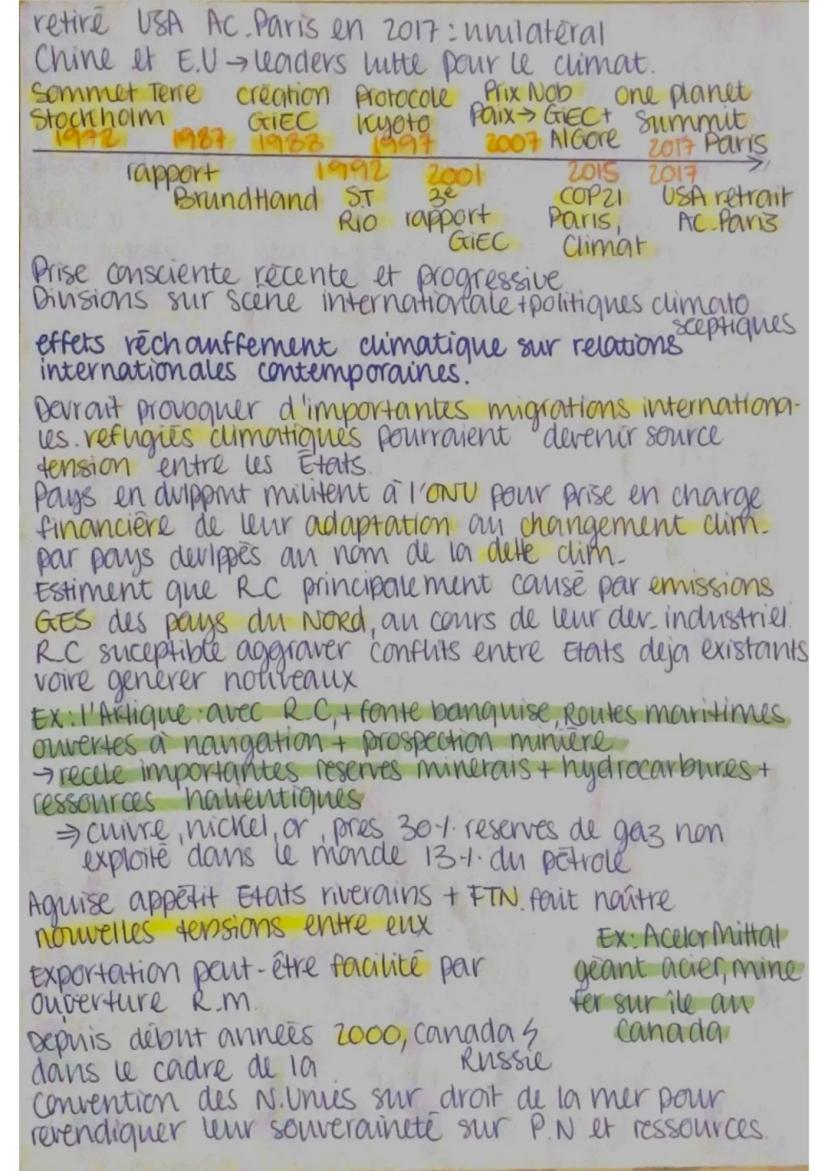 retiré USA AC.Paris en 2017 : unilatéral
Chine et E.U → leaders lutte pour le climat.
Sommet Terre création Protocole Prix Nob one planet
Stockholm GIEC Kyoto Paix → GIEC + Summit
1972 1987 1988 1997 2007 Al Gore 2017 Paris
rapport 1992 2001 2015 2017
Brundtland ST 3e COP21 USA retrait
Rio rapport Paris, AC.Paris
GIEC Climat
Prise consciente récente et progressive
Divisions sur scène internationale + politiques climato
sceptiques
effets réchauffement climatique sur relations
internationales contemporaines.
Devrait provoquer d'importantes migrations internationa-
les. refugiés climatiques pourraient devenir source
tension entre les États.
Pays en dvlppmt militent à l'ONU pour prise en charge
financière de leur adaptation au changement clim.
par pays devlppés au nom de la dette clim.
Estiment que R.C principalement causé par emissions
GES des pays du NORD, au cours de leur dev. industriel
R.C suceptible aggraver conflits entre Etats deja existants
voire générer nouveaux
Ex: l'Artique : avec R.C, + fonte banquise, Routes maritimes
ouvertes à navigation + prospection minière
→ recèle importantes reserves minerais + hydrocarbures +
ressources halientiques
⇒ cuivre, nickel, or, pres 30% reserves de gaz non
exploité dans le monde 13% du pétrole
Aguise appétit Etats riverains + FTN. fait naître
nouvelles tensions entre eux
Ex: AcelorMittal
Exportation peut-être facilité par géant acier, mine
ouverture R.m. fer sur île au
Depuis début années 2000, Canada ↯ Canada
dans le cadre de la Russie
Convention des N.Unies sur droit de la mer pour
revendiquer leur souveraineté sur P.N et ressources.